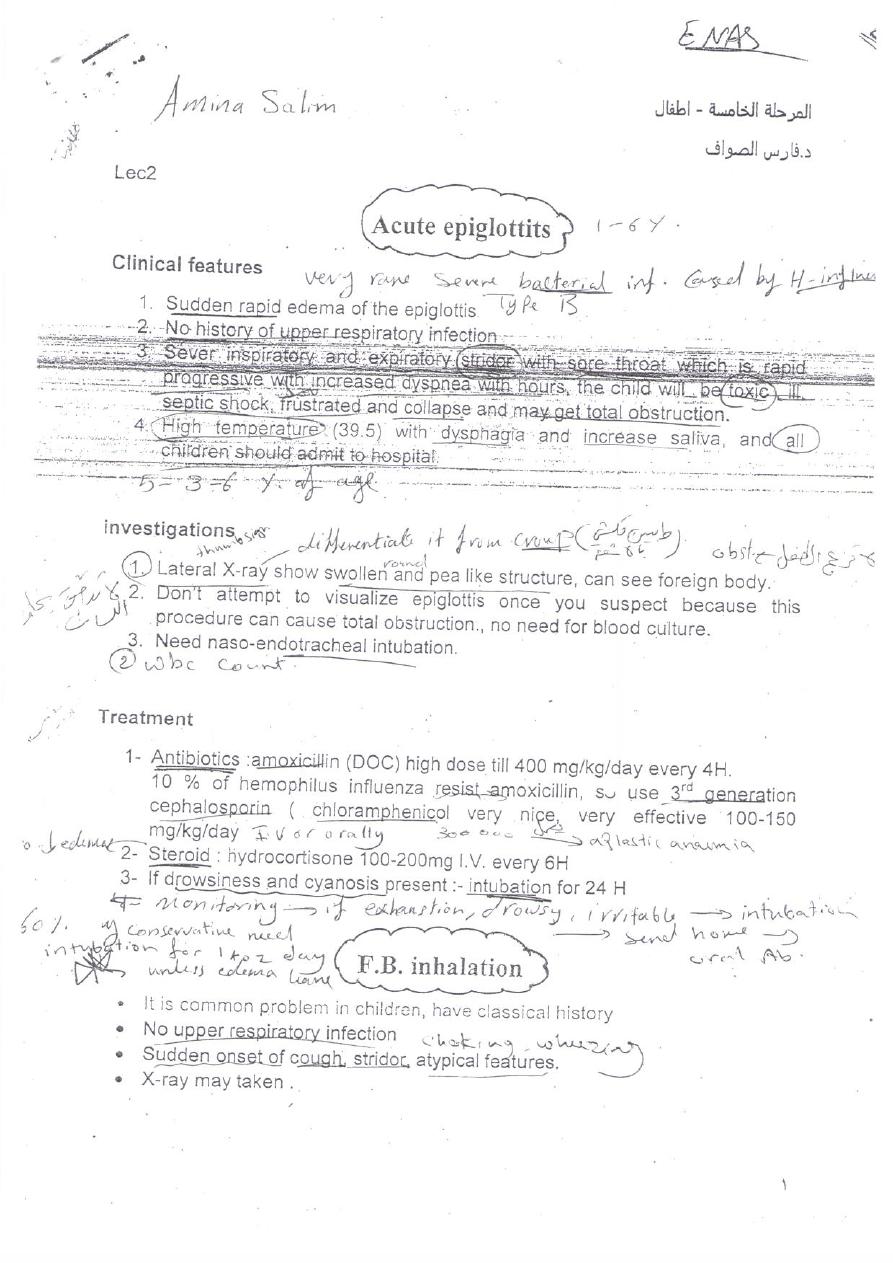 ENAS
Amina Salim
المرحلة الخامسة - اطفال
د.فارس الصواف
Lec2
Acute epiglottits 1-6 Y.
Clinical features
very rare severe bacterial inf. caused by H-influe
Type B
1. Sudden rapid edema of the epiglottis
2. No history of upper respiratory infection
3. Sever inspiratory and expiratory stridor with sore throat which is rapid
progressive with increased dyspnea with hours, the child will be toxic, ill,
septic shock, frustrated and collapse and may get total obstruction.
4. High temperature (39.5) with dysphagia and increase saliva, and all
children should admit to hospital.
5- 3-6 Y. of age
investigations
thumb sign differentiate it from croup
1. Lateral X-ray show swollen and pea like structure, can see foreign body.
round
2. Don't attempt to visualize epiglottis once you suspect because this
procedure can cause total obstruction., no need for blood culture.
3. Need naso-endotracheal intubation.
2 wbc count.
Treatment
1- Antibiotics :amoxicillin (DOC) high dose till 400 mg/kg/day every 4H.
10 % of hemophilus influenza resist amoxicillin, so use 3rd generation
cephalosporin ( chloramphenicol very nice, very effective 100-150
mg/kg/day I.V or orally 300 000 aplastic anaumia
2- Steroid : hydrocortisone 100-200mg I.V. every 6H
3- If drowsiness and cyanosis present :- intubation for 24 H
4= Monitoring → if exhaustion, drowsy, irritable → intubation
→ send home →
oral Ab.
conservative need
intubation for 1 to 2 day
unless edema
F.B. inhalation
• It is common problem in children, have classical history
• No upper respiratory infection choking, wheezing
• Sudden onset of cough, stridor, atypical features.
• X-ray may taken .
١